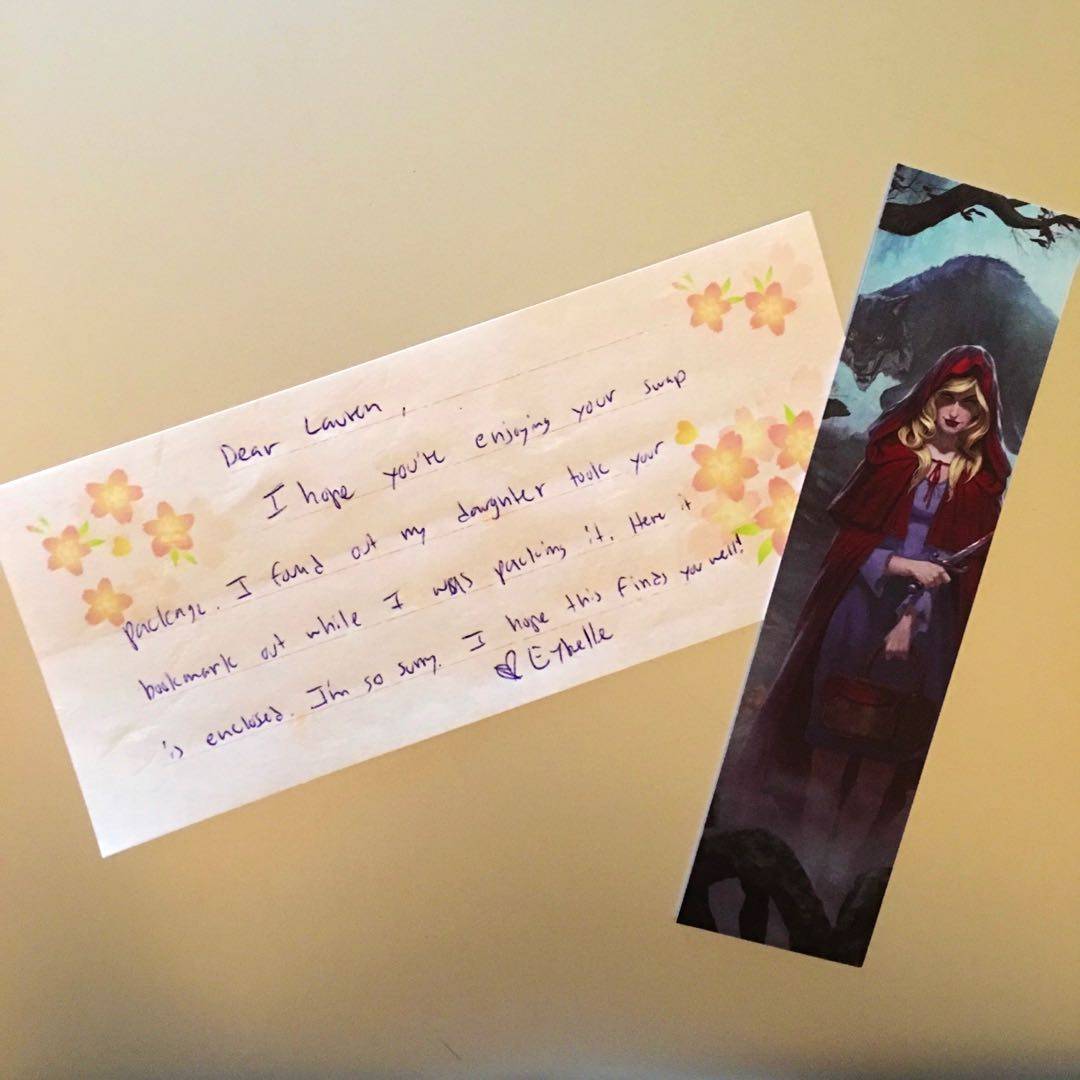 Dear Lauren,
I hope you're enjoying your swap
package. I found out my daughter took your
bookmark out while I was packing it. Here it
is enclosed. I'm so sorry. I hope this finds you well!